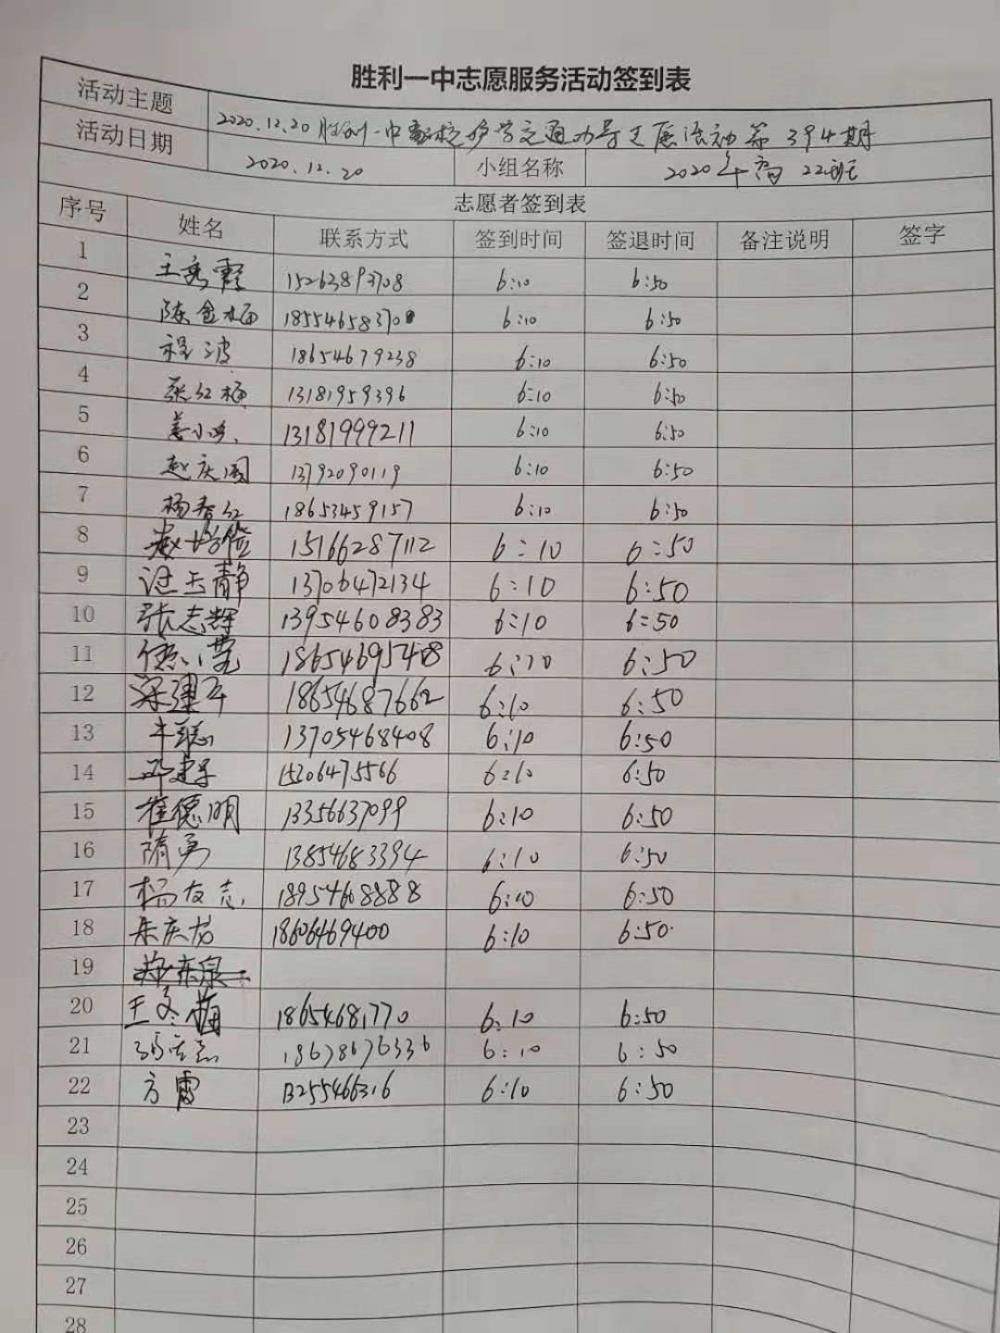 胜利一中志愿服务活动签到表
活动主题 2020.12.20胜利一中离校护学交通劝导志愿活动第394期
活动日期 2020.12.20 小组名称 2020年高22班
志愿者签到表
序号 姓名 联系方式 签到时间 签退时间 备注说明 签字
1 王秀霞 15263893708 6:10 6:50
2 陈金梅 1855465837 6:10 6:50
3 程波 18654679238 6:10 6:50
4 张红梅 13181959396 6:10 6:50
5 姜小 13181999211 6:10 6:50
6 赵庆国 13792090119 6:10 6:50
7 杨春红 18653459157 6:10 6:50
8 赵培俊 15166287112 6:10 6:50
9 过玉静 13706472134 6:10 6:50
10 张志辉 13954608383 6:10 6:50
11 18654695408 6:10 6:50
12 梁建军 18654687662 6:10 6:50
13 牛聪 13705468408 6:10 6:50
14 邓建 15206475566 6:10 6:50
15 崔德明 13356637099 6:10 6:50
16 隋勇 13854683394 6:10 6:50
17 杨友志 18954608888 6:10 6:50
18 朱庆龙 18606469400 6:10 6:50
19
20 王冬梅 18654681770 6:10 6:50
21 18678676336 6:10 6:50
22 方雷 13255466316 6:10 6:50
23
24
25
26
27
28